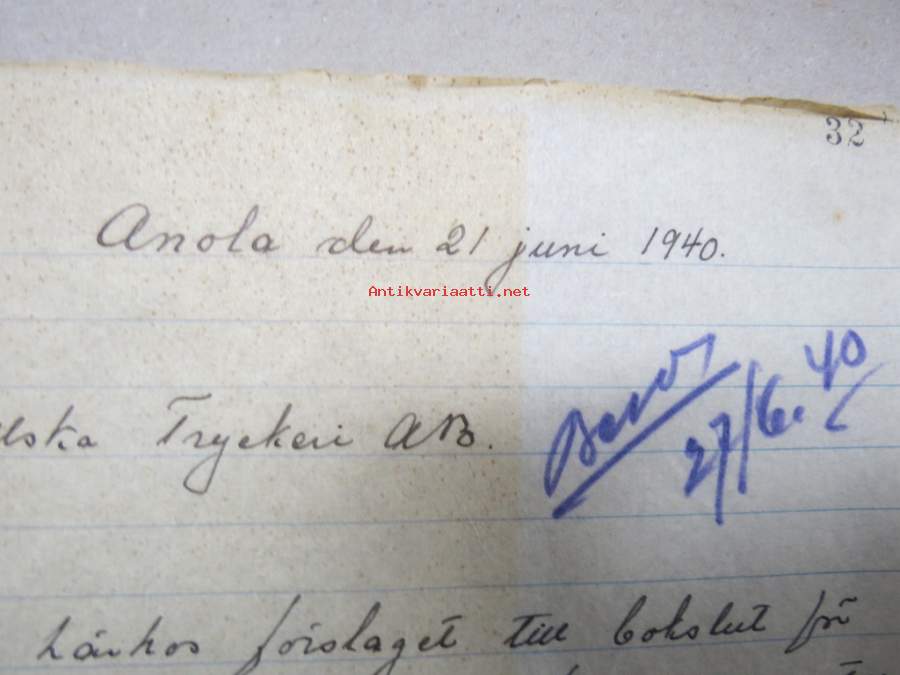 32
Anola den 21 juni 1940.
Antikvariaatti.net
Tryckeri AB.
27/6. 40
härhos förslaget till bokslut för